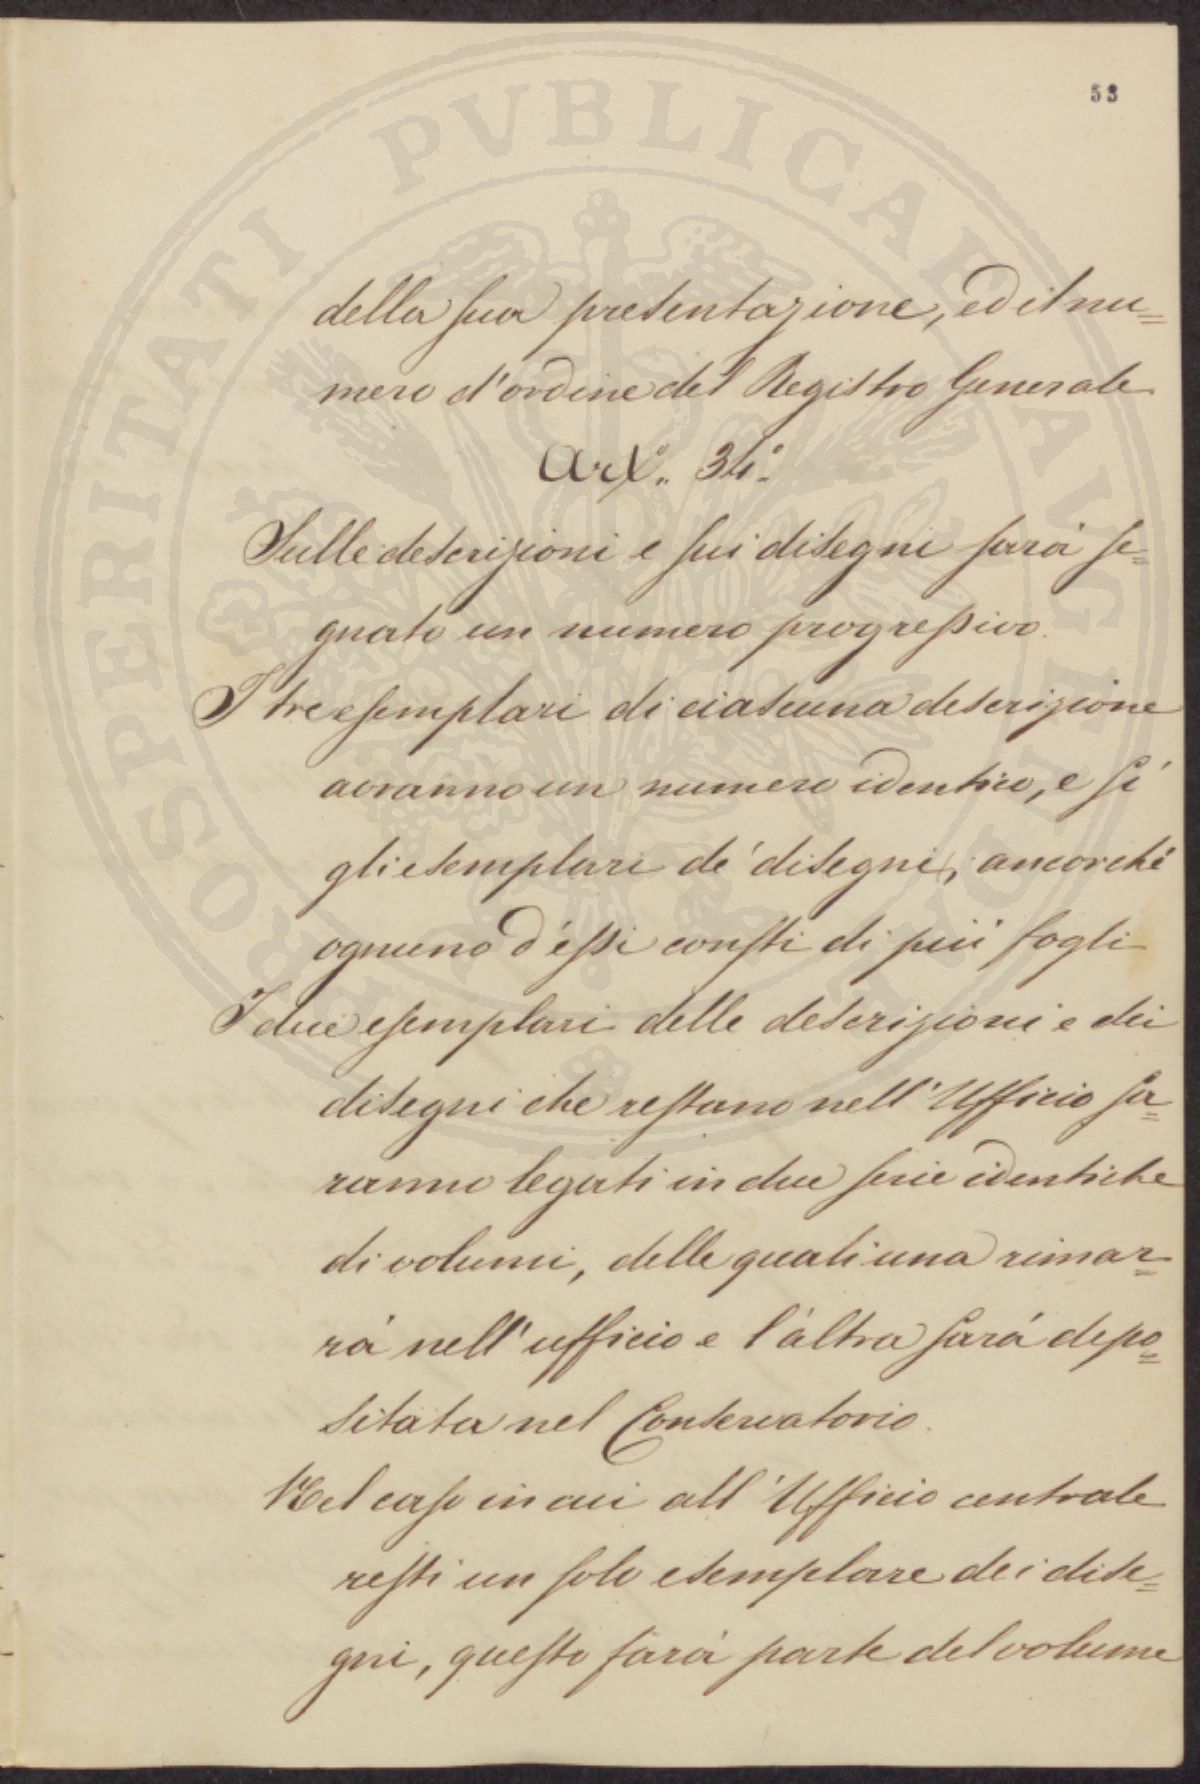 53
PROSPERITATI PVBLICAE AVGENDAE
della sua presentazione, ed il nu=
mero d'ordine del Registro Generale
Art.° 34.°
Sulle descrizioni e sui disegni sarà se=
gnato un numero progressivo.
I tre esemplari di ciascuna descrizione
avranno un numero identico, e sì
gli esemplari de' disegni, ancorchè
ognuno d'essi consti di più fogli
I due esemplari delle descrizioni e dei
disegni che restano nell'Ufficio sa=
ranno legati in due serie identiche
di volumi, delle quali una rimar=
rà nell'ufficio e l'altra sarà depo=
sitata nel Conservatorio.
Nel caso in cui all'Ufficio centrale
resti un solo esemplare dei dise=
gni, questo farà parte del volume